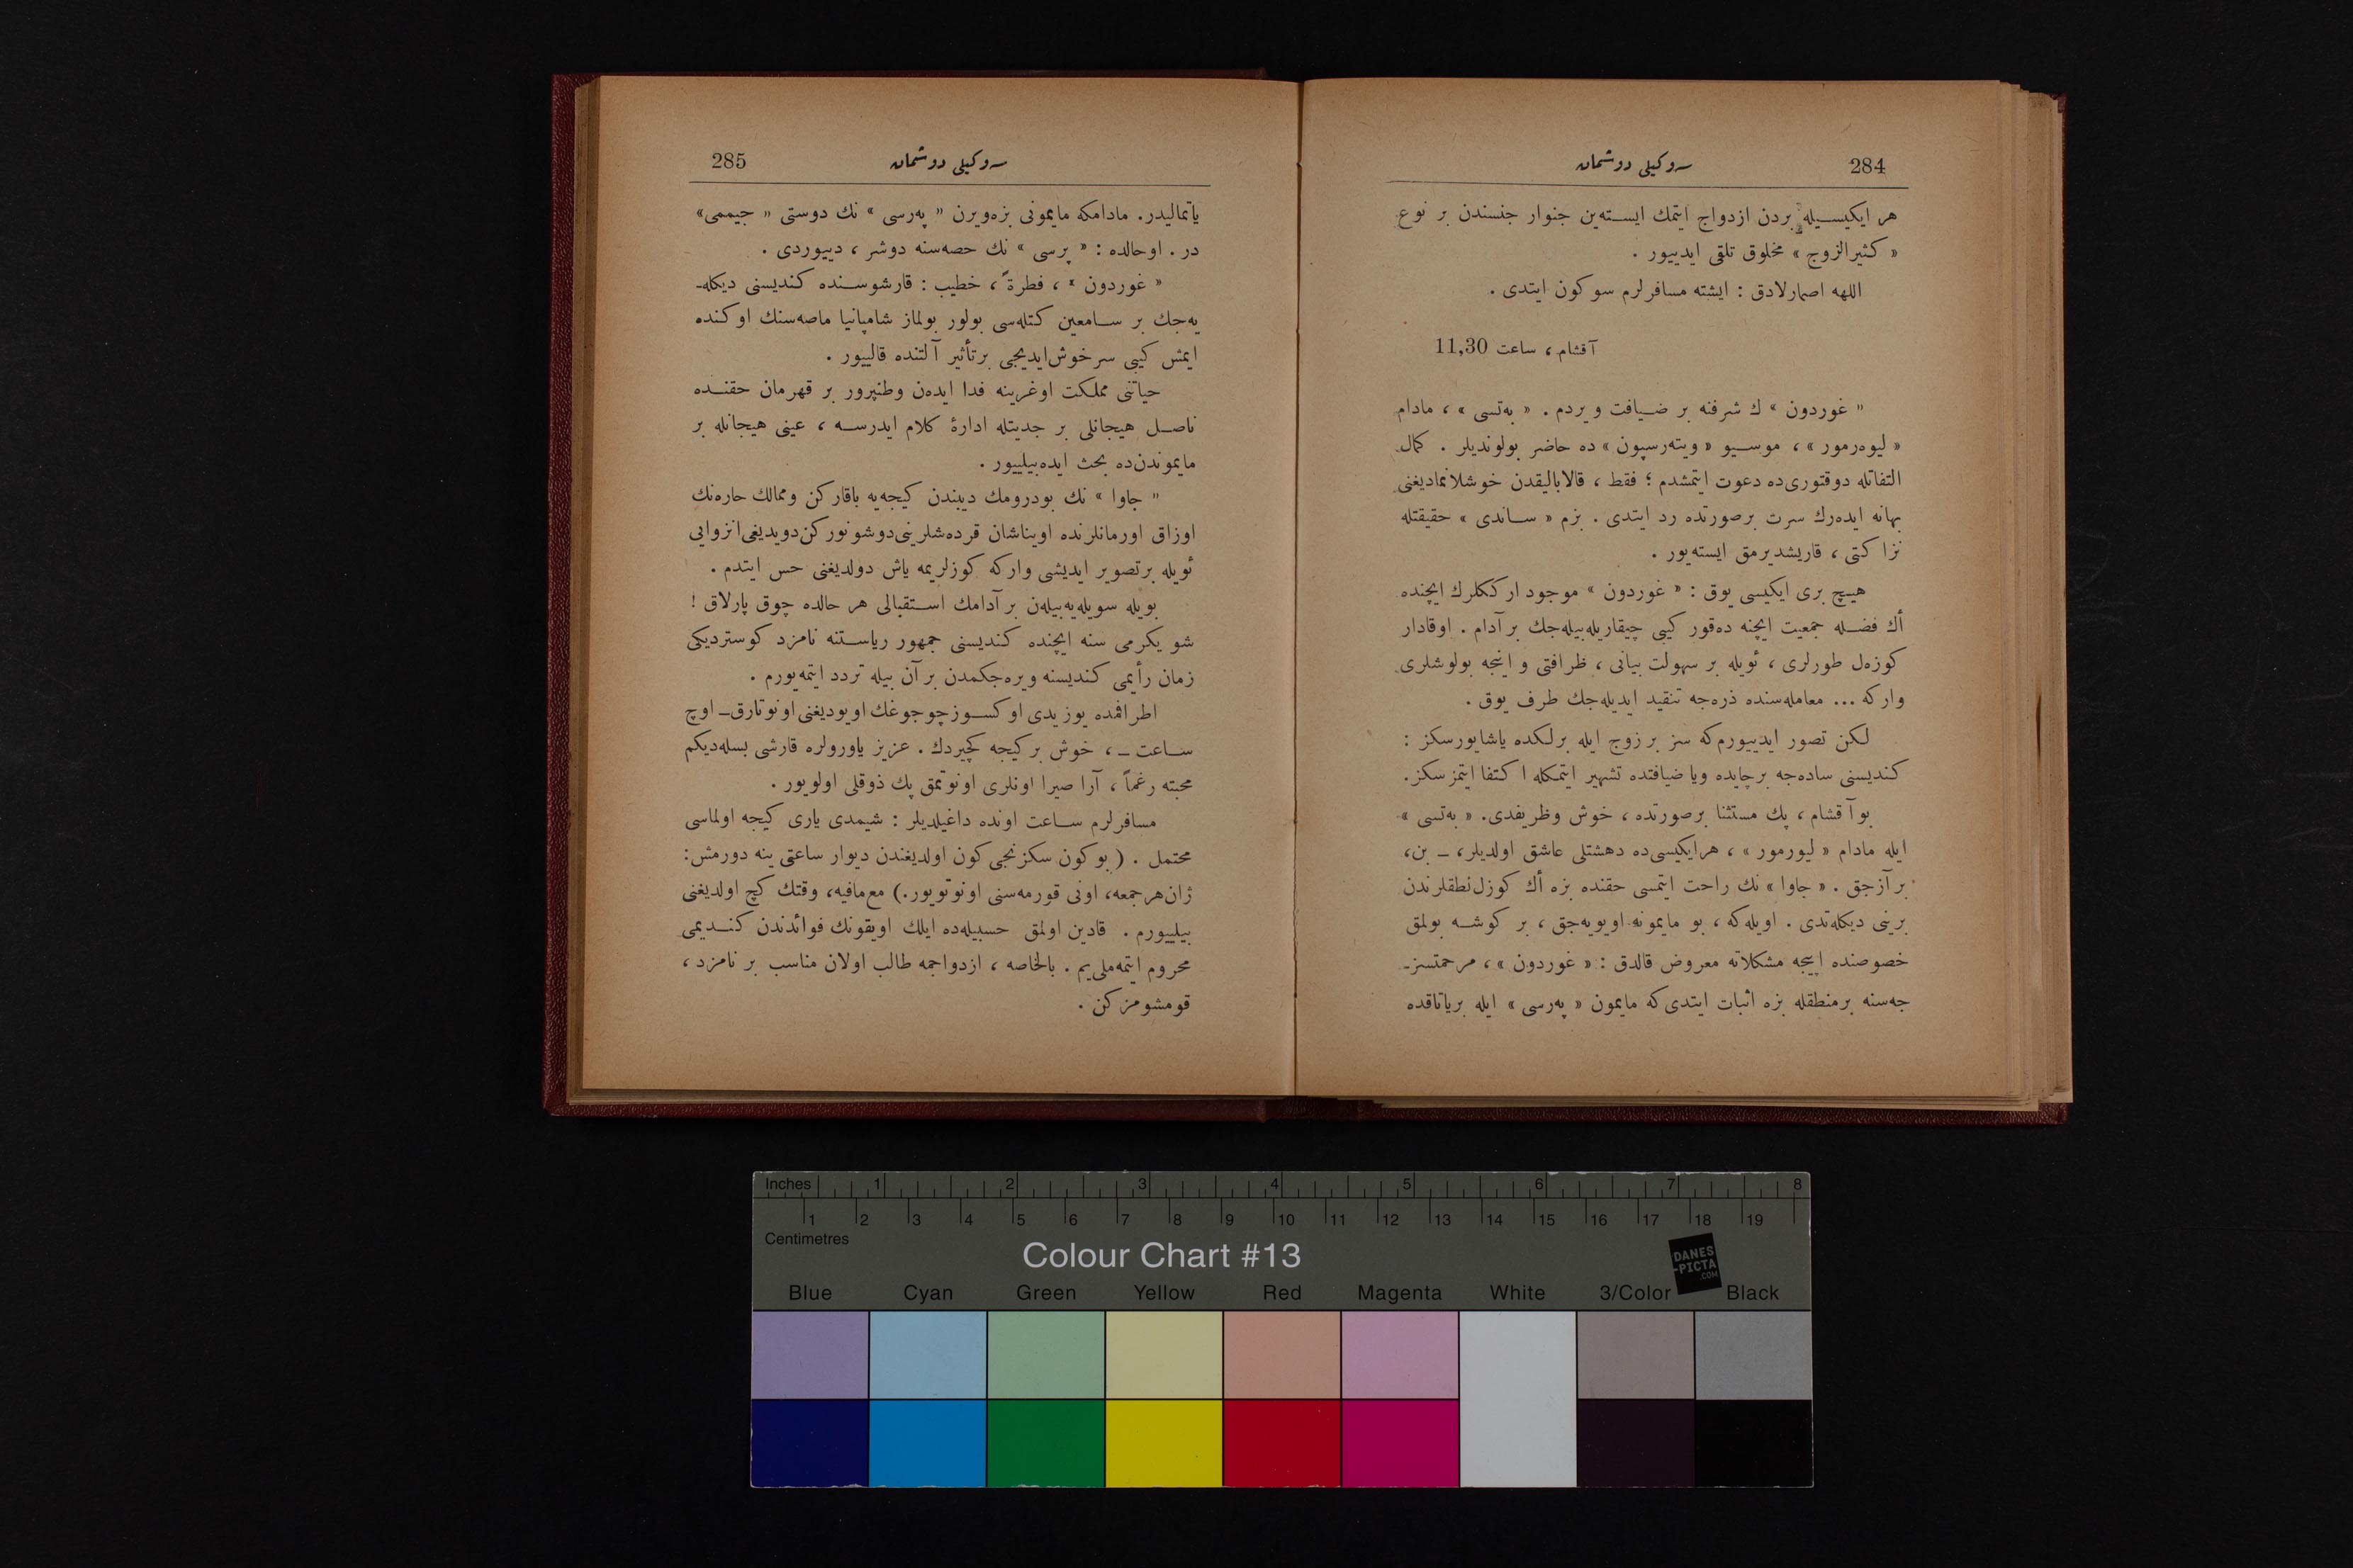 284 سه‌وكیلی دوشمان
هر ایكیسـیله بردن ازدواج ایتمك ایسـته‌ین جنوار جنسندن بر نوع
« كثیرالزوج » مخلوق تلقی ایدییور .
اللهه اصمارلادق : ایشته مسافرلرم سوكون ایتدی .
آقشام ، ساعت 11,30
« غوردون » ك شرفنه بر ضـیافت ویردم . « به‌تسی » ، مادام
« لیوه‌رمور » ، موسـیو « ویته‌رسپون » ده حاضر بولوندیلر . كمال
التفاتله دوقتوری‌ده دعوت ایتمشدم ؛ فقط ، قالابالیقدن خوشلانمادیغنی
بهانه ایده‌رك سرت برصورتده رد ایتدی . بزم « سـاندی » حقیقتله
نزاكتی ، قاریشدیرمق ایسته‌یور .
هیـچ بری ایكیسی یوق : « غوردون » موجود ارككلرك ایچنده
أك فضـله جمعیت ایچنه ده‌قور كیبی چیقاریله‌بیله‌جك بر آدام . اوقادار
كوزه‌ل طورلری ، ئویله بر سهولت بیانی ، ظرافتی و اینجه بولوشلری
واركه ... معامله‌سنده ذره‌جه تنقید ایدیله‌جك طرف یوق .
لكن تصور ایدییورم‌كه سز بر زوج ایله برلكده یاشایورسكز :
كندیسنی ساده‌جه برچایده ویا ضیافتده تشهیر ایتمكله اكتفا ایتمزسكز .
بو آقشام ، پك مستثنا برصورتده ، خوش وظریفدی . « به‌تسی »
ایله مادام « لیورمور » ، هرایكیسی‌ده دهشتلی عاشق اولدیلر ، ـ بن ،
بر آزجق . « جاوا » نك راحت ایتمسی حقنده بزه أك كوزل نطقلرندن
برینی دیكله‌تدی . اویله‌كه ، بو مایمونه اویویه‌جق ، بر كوشـه بولمق
خصوصنده اپیجه مشكلاته معروض قالدق : « غوردون » ، مرحمتسز‌ـ
جه‌سنه برمنطقله بزه اثبات ایتدی‌كه مایمون « په‌رسی » ایله بریاتاقده
285 سه‌وكیلی دوشمان
یاتمالیدر . مادامكه مایمونی بزه‌ویرن « په‌رسی » نك دوستی « جیممی »
در . اوحالده : « پرسی » نك حصه‌سنه دوشر ، دییوردی .
« غوردون » ، فطرةً ، خطیب : قارشوسـنده كندیسنی دیكله‌ـ
یه‌جك بر سـامعین كتله‌سی بولور بولماز شامپانیا ماصه‌سنك اوكنده
ایمش كیبی سرخوش‌ایدیجی برتأثیر آلتنده قالییور .
حیاتنی مملكت اوغرینه فدا ایده‌ن وطنپرور بر قهرمان حقنـده
ناصـل هیجانلی بر جدیتله ادارۀ كلام ایدرسـه ، عینی هیجانله بر
مایموندن‌ده بحث ایده‌بیلییور .
« جاوا » نك بودرومك دیبندن كیجه‌یه باقاركن وممالك حاره‌نك
اوزاق اورمانلرنده اویناشان قرده‌شلرینی‌دوشونوركن‌دویدیغی‌انزوایی
ئویله برتصویر ایدیشی واركه كوزلریمه یاش دولدیغنی حس ایتدم .
بویله سویله‌یه‌بیله‌ن بر آدامك اسـتقبالی هر حالده چوق پارلاق !
شو یكرمی سنه ایچنده كندیسنی جمهور ریاسـتنه نامزد كوستردیكی
زمان رأیمی كندیسنه ویره‌جكمدن بر آن بیله تردد ایتمه‌یورم .
اطرافمده یوز یدی اوكسـوز چوجوغك اویودیغنی اونوتارق ـ اوچ
سـاعت ـ ، خوش بر كیجه كچیردك . عزیز یاورولره قارشی بسله‌دیكم
محبته رغماً ، آرا صیرا اونلری اونوتمق پك ذوقلی اولویور .
مسافرلرم سـاعت اونده داغیلدیلر : شیمدی یاری كیجه اولماسی
محتمل . ( بوكون سكزنجی كون اولدیغندن دیوار ساعتی ینه دورمش :
ژان هرجمعه ، اونی قورمه‌سنی اونوتویور . ) مع‌مافیه ، وقتك كچ اولدیغنی
بیلییورم . قادین اولمق حسبیله‌ده ایلك اویقونك فوائدندن كنـدیمی
محروم ایتمه‌ملی‌یم . بالخاصه ، ازدواجمه طالب اولان مناسب بر نامزد ،
قومشومزكن .
Inches 1 2 3 4 5 6 7 8
1 2 3 4 5 6 7 8 9 10 11 12 13 14 15 16 17 18 19
Centimetres
Colour Chart #13
DANES
-PICTA
.COM
Blue Cyan Green Yellow Red Magenta White 3/Color Black